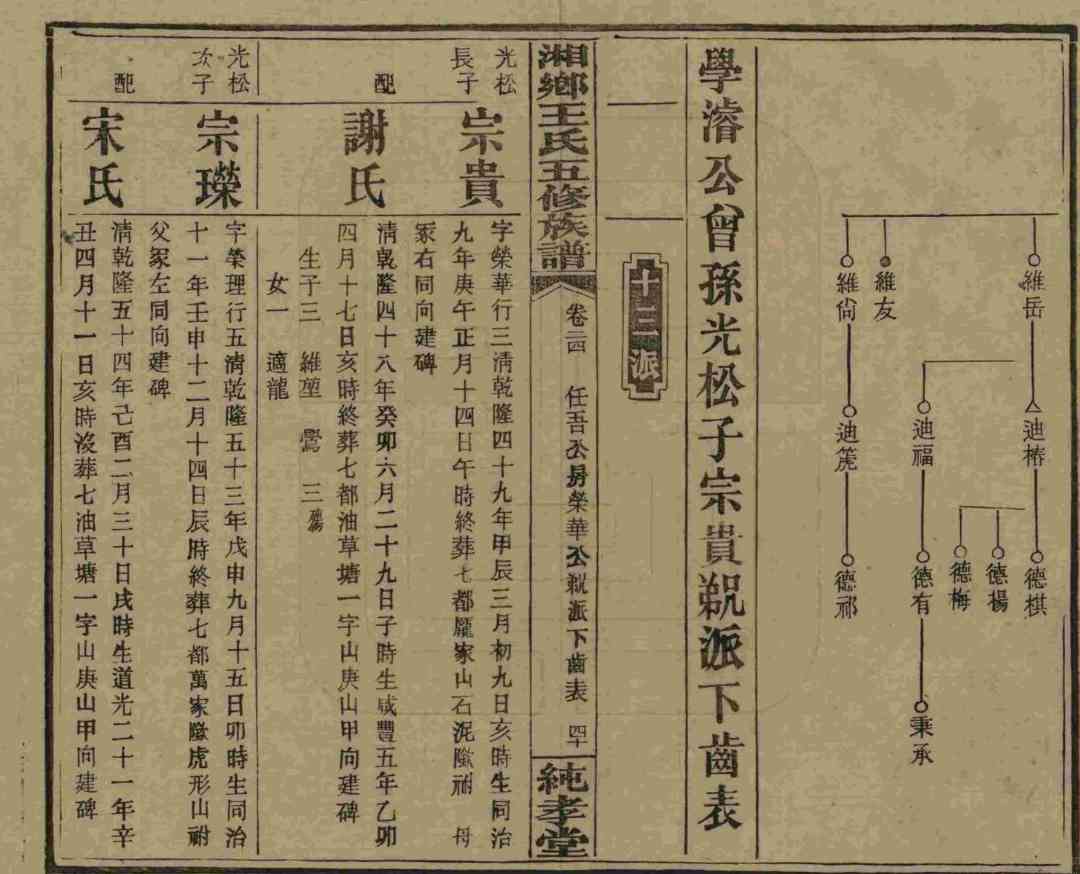 維岳
迪椿
德棋
德楊
德梅
迪福
德有
秉承
維友
維尙
迪箎
德祁
學濬公曾孫光松子宗貴䙷派下齒表
十三派
湘鄉王氏五修族譜
卷二四
任吾公房榮華公䙷派下齒表
四十
純孝堂
光松長子
宗貴
字榮華行三淸乾隆四十九年甲辰三月初九日亥時生同治
九年庚午正月十四日午時終葬七都龎家山石泥隞祔母
冢右同向建碑
配
謝氏
淸乾隆四十八年癸卯六月二十九日子時生咸豐五年乙卯
四月十七日亥時終葬七都油草塘一字山庚山甲向建碑
生子三 維堃 鸞 三
女一 適龍
光松次子
宗瑮
字榮理行五淸乾隆五十三年戊申九月十五日卯時生同治
十一年壬申十二月十四日辰時終葬七都萬家隞虎形山祔
父冢左同向建碑
配
宋氏
淸乾隆五十四年己酉二月三十日戌時生道光二十一年辛
丑四月十一日亥時沒葬七油草塘一字山庚山甲向建碑